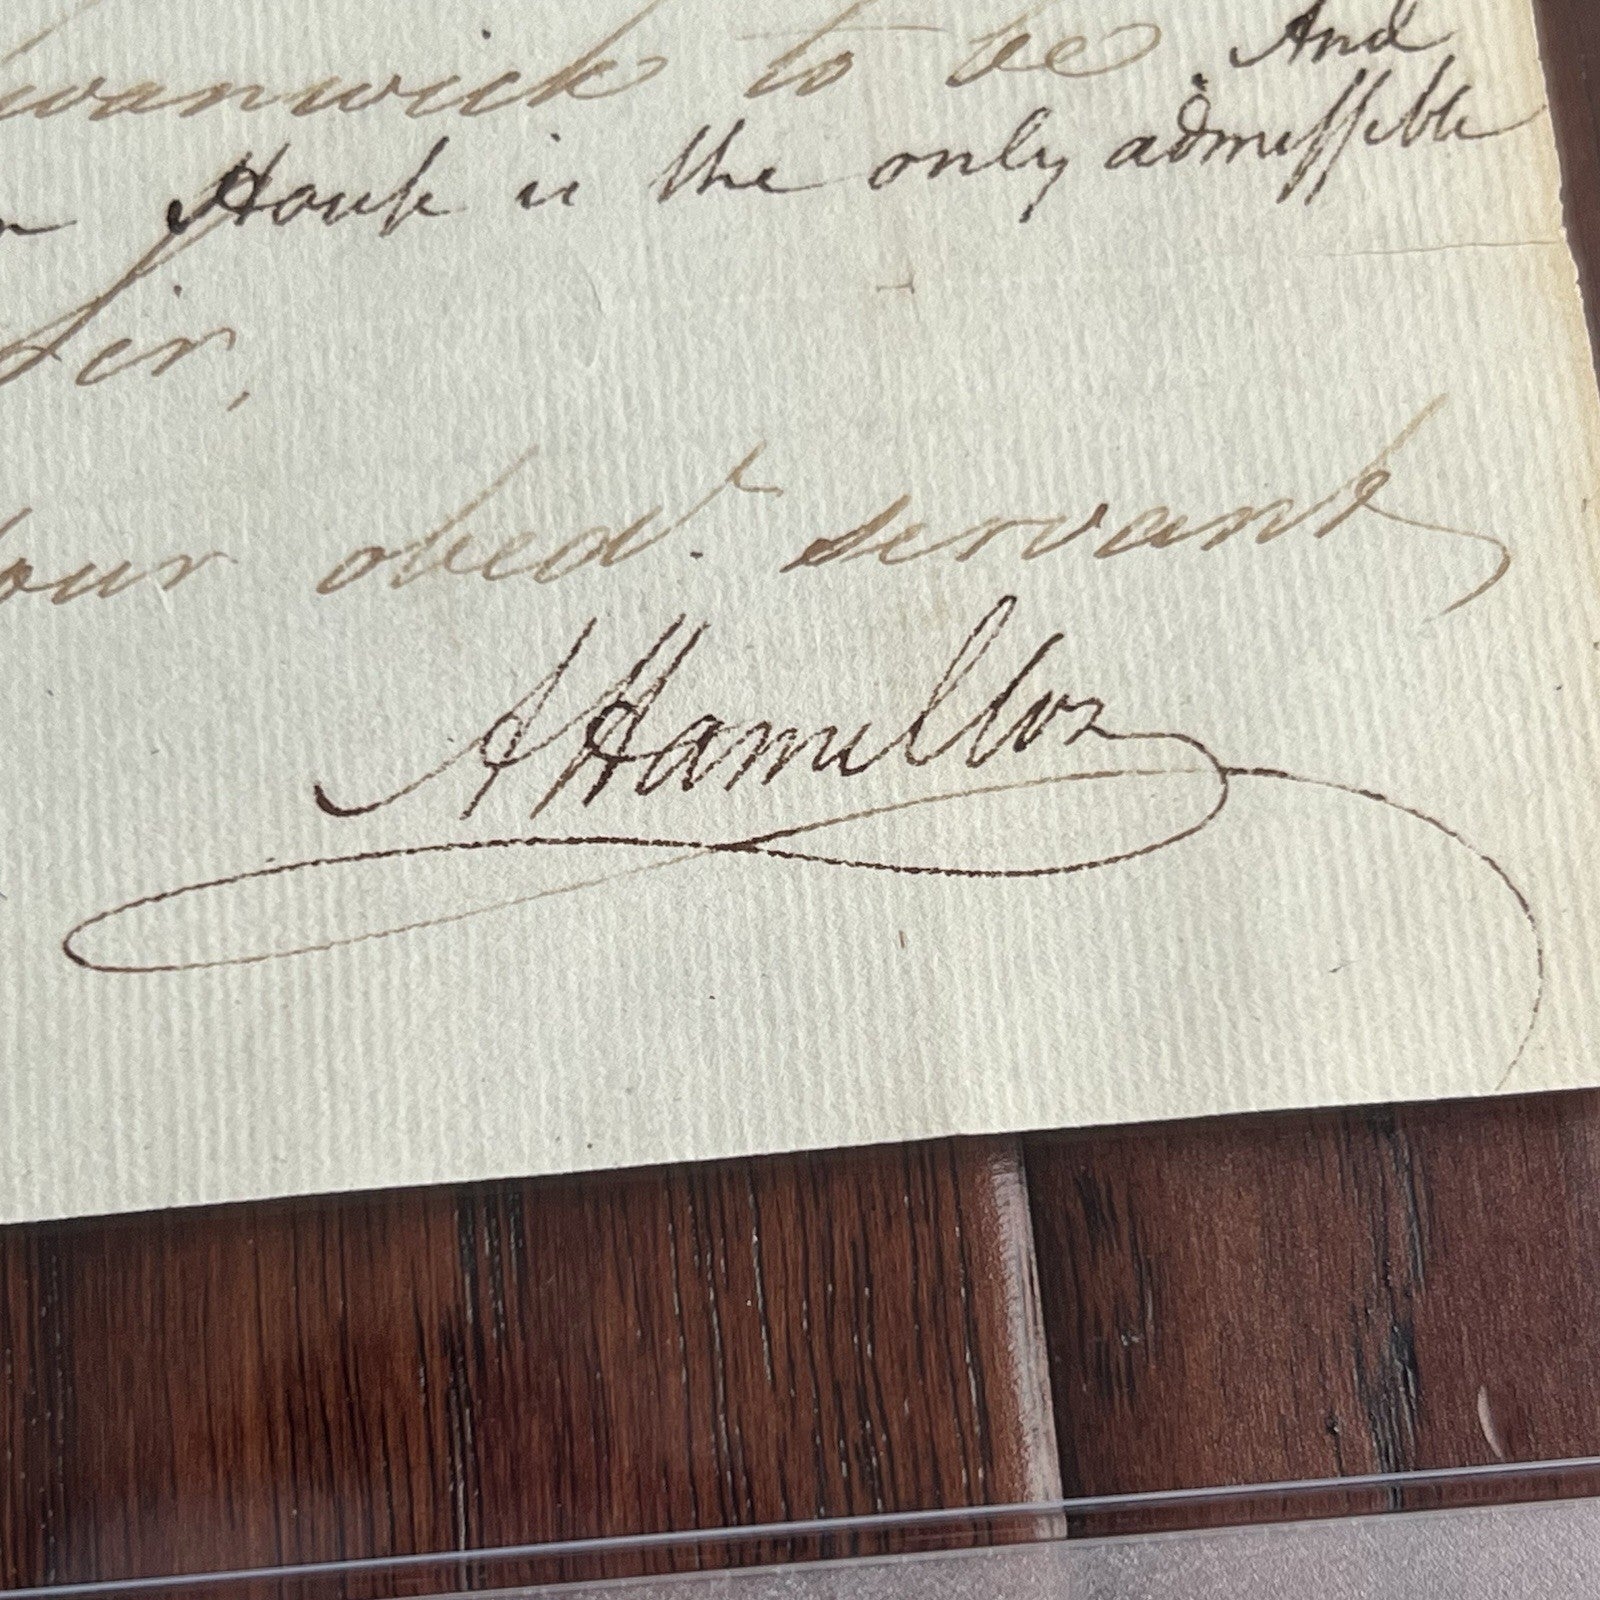 wanwick to be. And
House is the only admissible
Sir,
our obedt. servant
A Hamilton